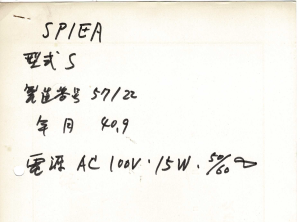 SPIEA
型式 S
製造番号 57122
年月 40.9
電源 AC 100V・15W. 50/60 ∾